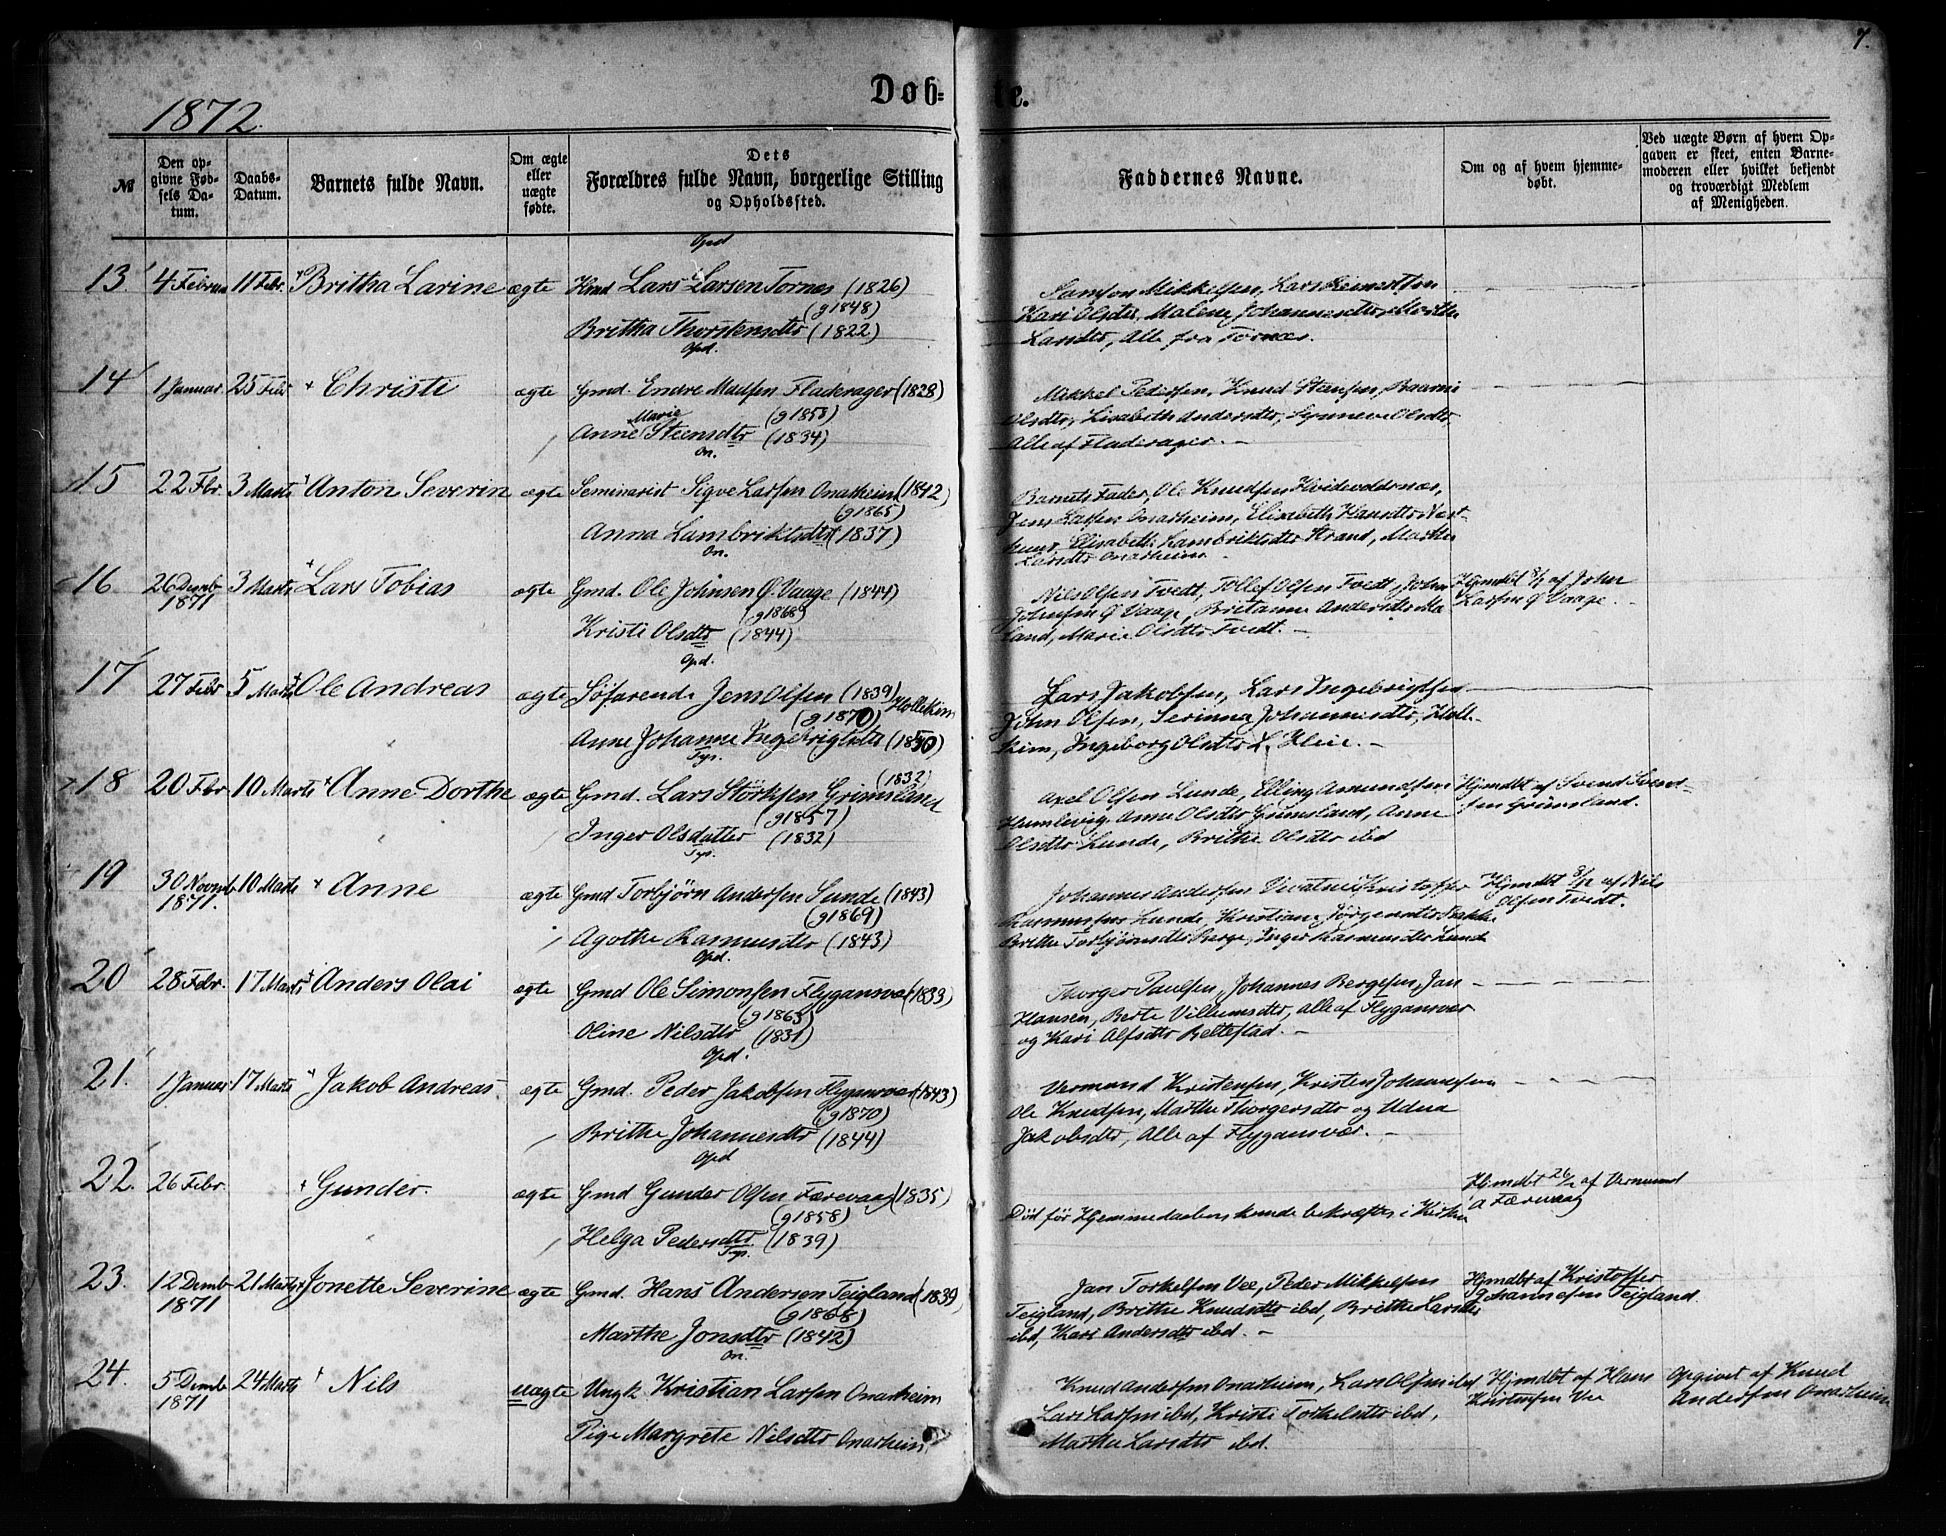 7.
Døb-
te.
1872.
№
Den op-
givne Fød-
sels Da-
tum.
Daabs-
Datum.
Barnets fulde Navn.
Om ægte
eller
uægte
fødte.
Dets
Forældres fulde Navn, borgerlige Stilling
og Opholdssted.
Faddernes Navne.
Om og af hvem hjemme-
døbt.
Ved uægte Børn af hvem Op-
gaven er skeet, enten Barne-
moderen eller hvilket bekjendt
og troværdigt Medlem
af Menigheden.
Opd
13. 4 Februa 11 Febr. Britha Larine ægte Hmd Lars Larsen Tornes (1826)
(g1848)
Britha Thorstensdtr (1822)
Samson Mikkelsen, Lars
Kari Olsdtr, Malene Johannesdtr, Marthe
Larsdtr, Alle fra Tornæs.
Opd.
14 1 Januar 25 Febr Christi ægte Gmd. Endre Madsen Fladerager (1828)
(g1858)
Anne Marie Steensdtr (1834)
Mikkel Pedersen, Knud Steensen,
Olsdtr, Lisabeth Andersdtr, Synneve Olsdtr,
Alle af Fladerager. -
On.
15 22 Fbr. 3 Marts Anton Severin ægte Seminarist Sigve Larsen Onarheim (1842)
(g1865)
Anna Lambriktsdtr (1837)
Barnets Fader, Ole Knudsen
Jens Larsen Onarheim, Elisabeth Hansdtr
Elisabeth Lambriktsdtr Strand, Marthe
Larsdtr Onarheim -
On.
16 26 Demb 1871 3 Marts Lars Tobias ægte Gmd. Ole Johnsen Ø. Vaage (1844)
(g1868)
Kristi Olsdtr (1844)
Nils Olsen Tvedt, Tollef Olsen Tvedt, John
Johnsen Ø Vaage, Britanne Andersdtr
land, Marie Olsdtr Tvedt. -
Hjemdbt 8/1 af John
Larsen Ø Vaage.
Opd.
17 27 Febr 5 Marts Ole Andreas ægte Søfarende Jens Olsen (1839) Hollekim
(g1870)
Anne Johanne Ingebrigtsdtr (1850)
Lars Jakobsen, Lars Ingebrigtsen
John Olsen, Serinna Johannesdtr, Holle-
kim, Ingeborg Olsdtr
Tys.
18 20 Fbr 10 Marts Anne Dorthe ægte Gmd. Lars Størksen Grimsland (1832)
(g1857)
Inger Olsdatter (1832)
Axel Olsen Lunde, Elling Amundsen
Humlevig, Anne Olsdtr Grimsland, Anne
Olsdtr Lunde, Brithe Olsdtr ibd
Hjemdbt af Svend Svend-
sen Grimsland.
Tys.
19 30 Novmb 1871. 10 Marts Anne ægte Gmd Torbjørn Andersen Lunde (1843)
(g1869)
Agothe Rasmusdtr (1843)
Johannes Andersen Kristoffer
Rasmussen Lunde, Kristiane Jørgensdtr
Brithe Torbjørnsdtr Berge, Inger Rasmusdtr Lunde
Hjmdbt 3/12 af Nils
Olsen Tvedt.
Opd.
20 28 Febr. 17 Marts Anders Olai ægte Gmd Ole Simonsen Flygansvær (1833)
(g1863)
Oline Nilsdtr (1831)
Thorger Paulsen, Johannes Bergesen, Jan
Hansen, Berte Villumsdtr, Alle af Flygansvær
og Kari Alfsdtr Beltestad. -
Opd.
21. 1 Januar 17 Marts Jakob Andreas ægte Gmd. Peder Jakobsen Flygansvær (1843)
(g1870)
Brithe Johannesdtr (1844)
Vermund Kristensen, Kristen Johannesen
Ole Knudsen, Marthe Thorgersdtr og
Jakobsdtr, Alle af Flygansvær. -
Opd
22. 26 Febr. Gunder. ægte Gmd Gunder Olsen Færevaag (1835)
(g1858)
Helga Pedersdtr (1839)
Død før Hjemmedaaben kunde bekræftes i Kirken
Hjemdbt 26/2 af Vermund
Færevaag
Tys.
23. 12 Demb 1871 21 Marts Jonette Severine ægte Gmd. Hans Andersen Teigland (1839)
(g1868)
Marthe Jonsdtr (1842)
Jan Torkelsen Vee, Peder Mikkelsen
Teigland, Brithe Knudsdtr ibd, Brithe Larsdtr
ibd, Kari Andersdtr ibd. -
Hjmdbt af Kristoffer
Johannesen Teigland.
On.
24. 5 Demb 1871 24 Marts Nils uægte Ungk Kristian Larsen Onarheim
Pige Margrete Nilsdtr Onarheim
Knud Andersen Onarheim, Lars Olsen ibd
Lars Larsen ibd, Kristi Torkelsdtr ibd,
Marthe Larsdtr ibd.
Hjmdbt af Hans
Kristensen Vee
Opgivet af Knud
Andersen Onarheim